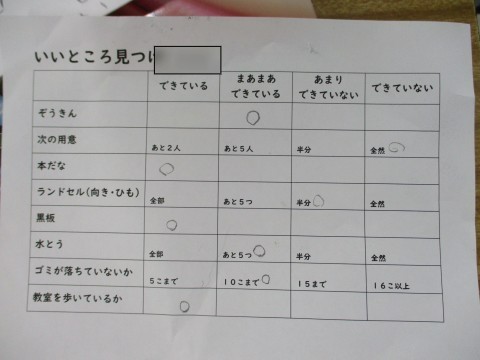 いいところ見つ
できている まあまあできている あまりできていない できていない
ぞうきん
次の用意 あと２人 あと５人 半分 全然
本だな
ランドセル(向き・ひも) 全部 あと５つ 半分 全然
黒板
水とう 全部 あと５つ 半分 全然
ゴミが落ちていないか ５こまで １０こまで １５まで １６こ以上
教室を歩いているか